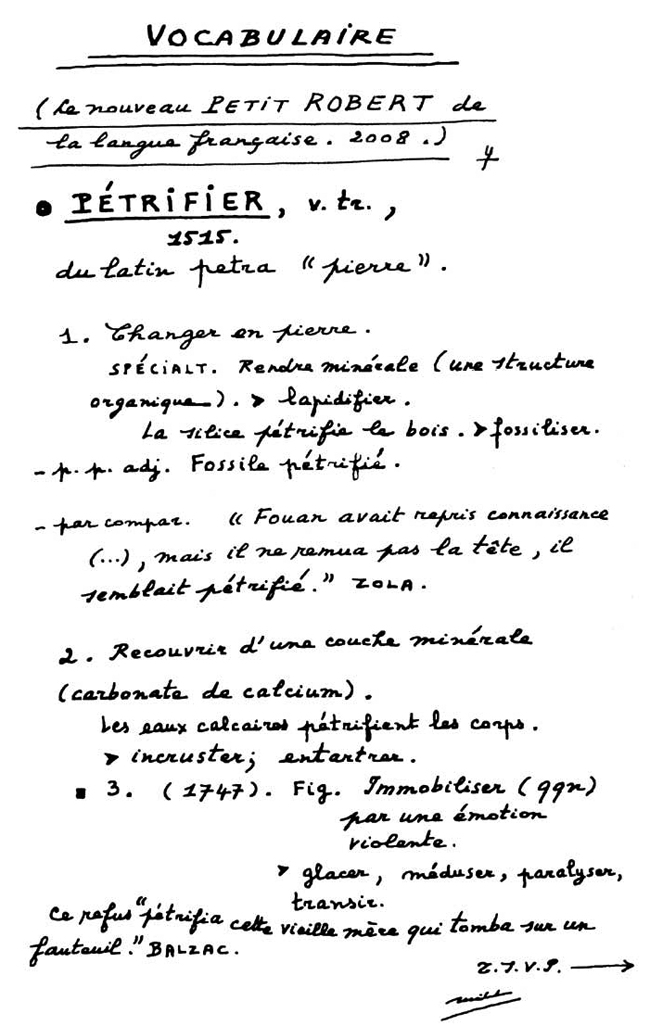 VOCABULAIRE
(Le nouveau PETIT ROBERT de
la langue française. 2008.)
• PÉTRIFIER, v. tr.,
1515.
du latin petra "pierre".
1. Changer en pierre.
SPÉCIALT. Rendre minérale (une structure
organique). > lapidifier.
La silice pétrifie le bois. > fossiliser.
- p. p. adj. Fossile pétrifié.
- par compar. "Fouan avait repris connaissance
(...), mais il ne remua pas la tête, il
semblait pétrifié." ZOLA.
2. Recouvrir d'une couche minérale
(carbonate de calcium).
Les eaux calcaires pétrifient les corps.
> incruster; entartrer.
▪ 3. (1747). Fig. Immobiliser (qqn)
par une émotion
violente.
> glacer, méduser, paralyser,
transir.
Ce refus "pétrifia cette vieille mère qui tomba sur un
fauteuil." BALZAC.
T.S.V.P. →